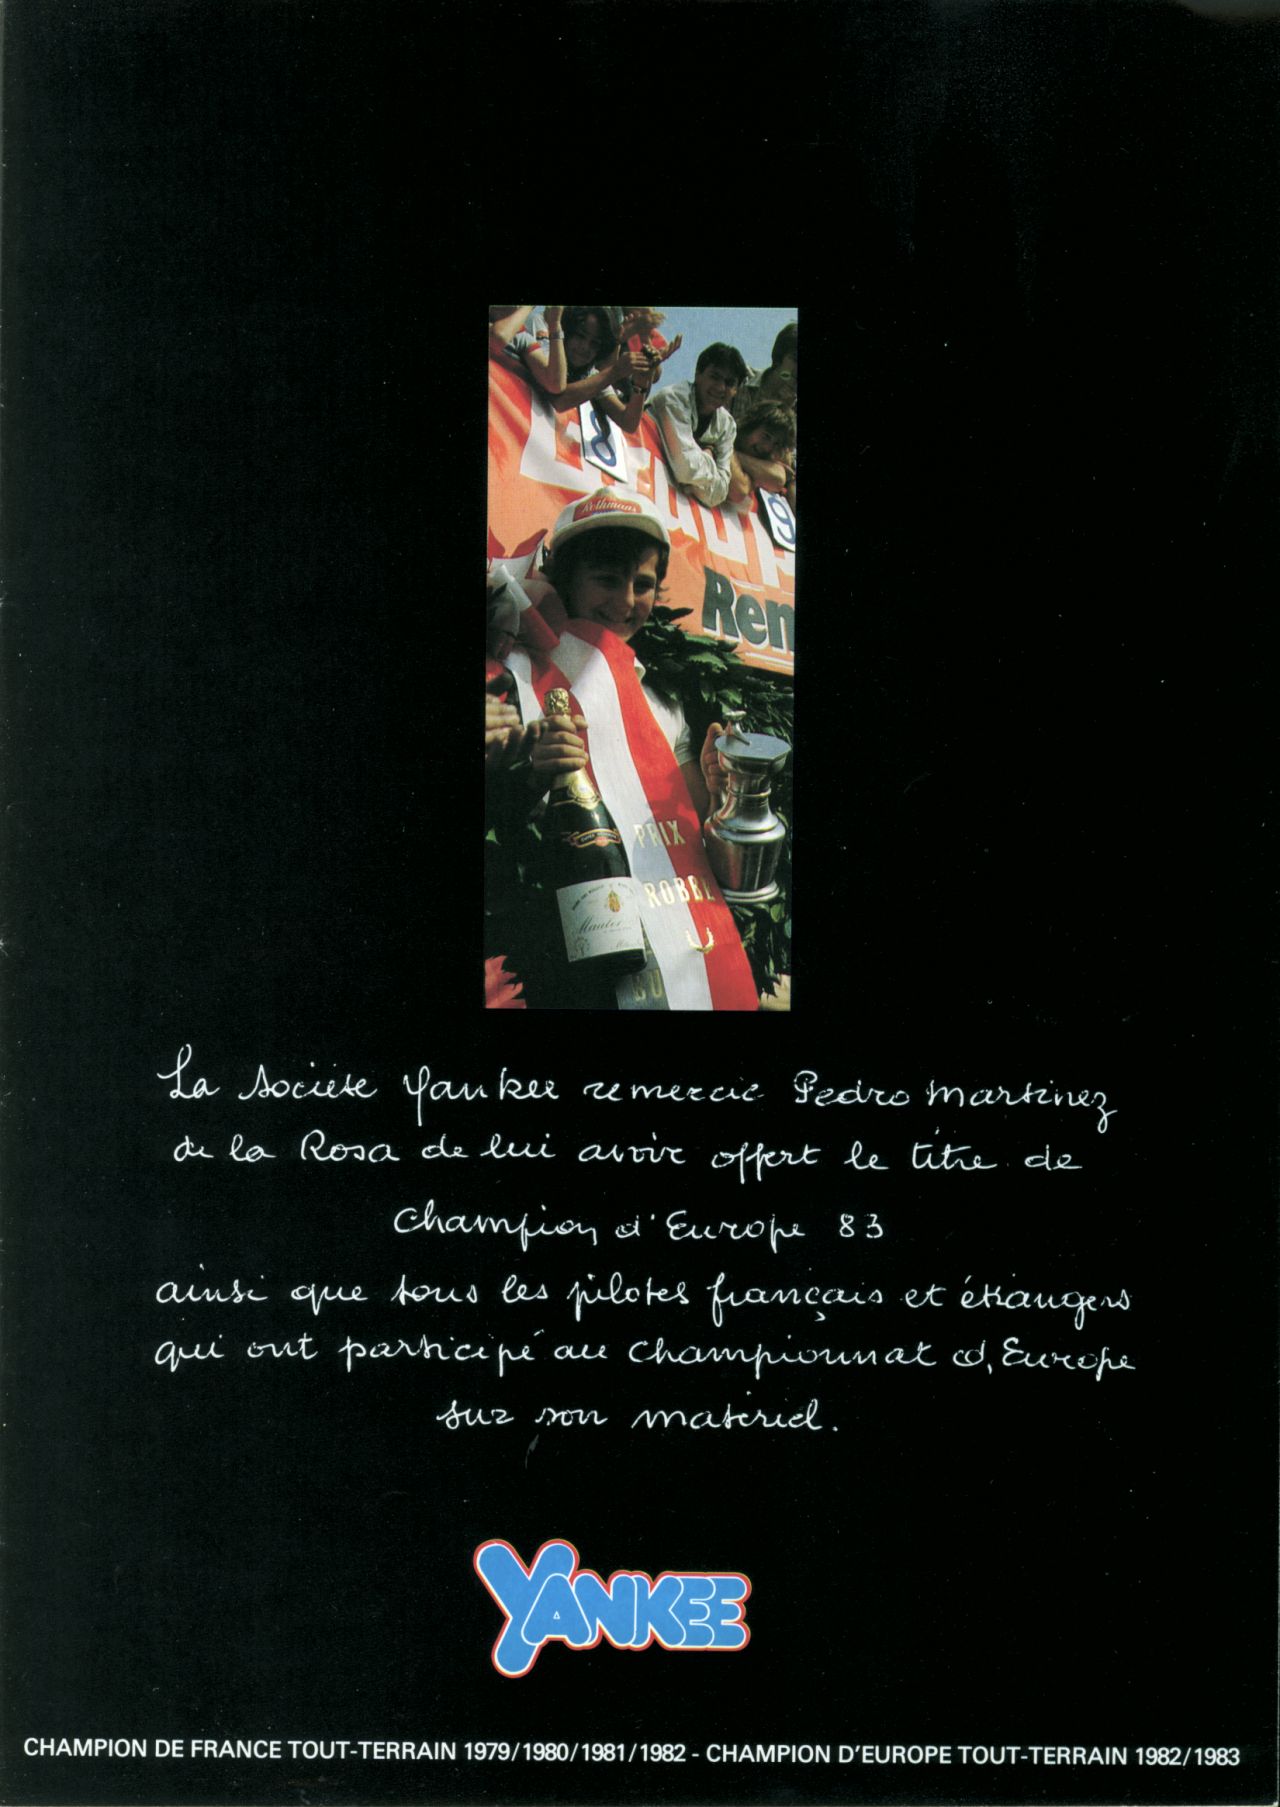 8
9
Rothmans
Ren
PRIX
ROBBE
La Société Yankee remercie Pedro Martinez
de la Rosa de lui avoir offert le titre de
Champion d'Europe 83
ainsi que tous les pilotes français et étrangers
qui ont participé au championnat d'Europe
sur son matériel.
YANKEE
CHAMPION DE FRANCE TOUT-TERRAIN 1979/1980/1981/1982 - CHAMPION D'EUROPE TOUT-TERRAIN 1982/1983